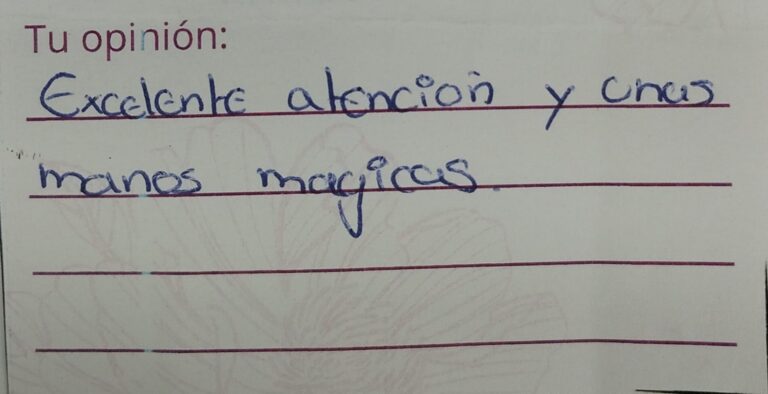 Tu opinión:
Excelente atención y unas
manos magicas.